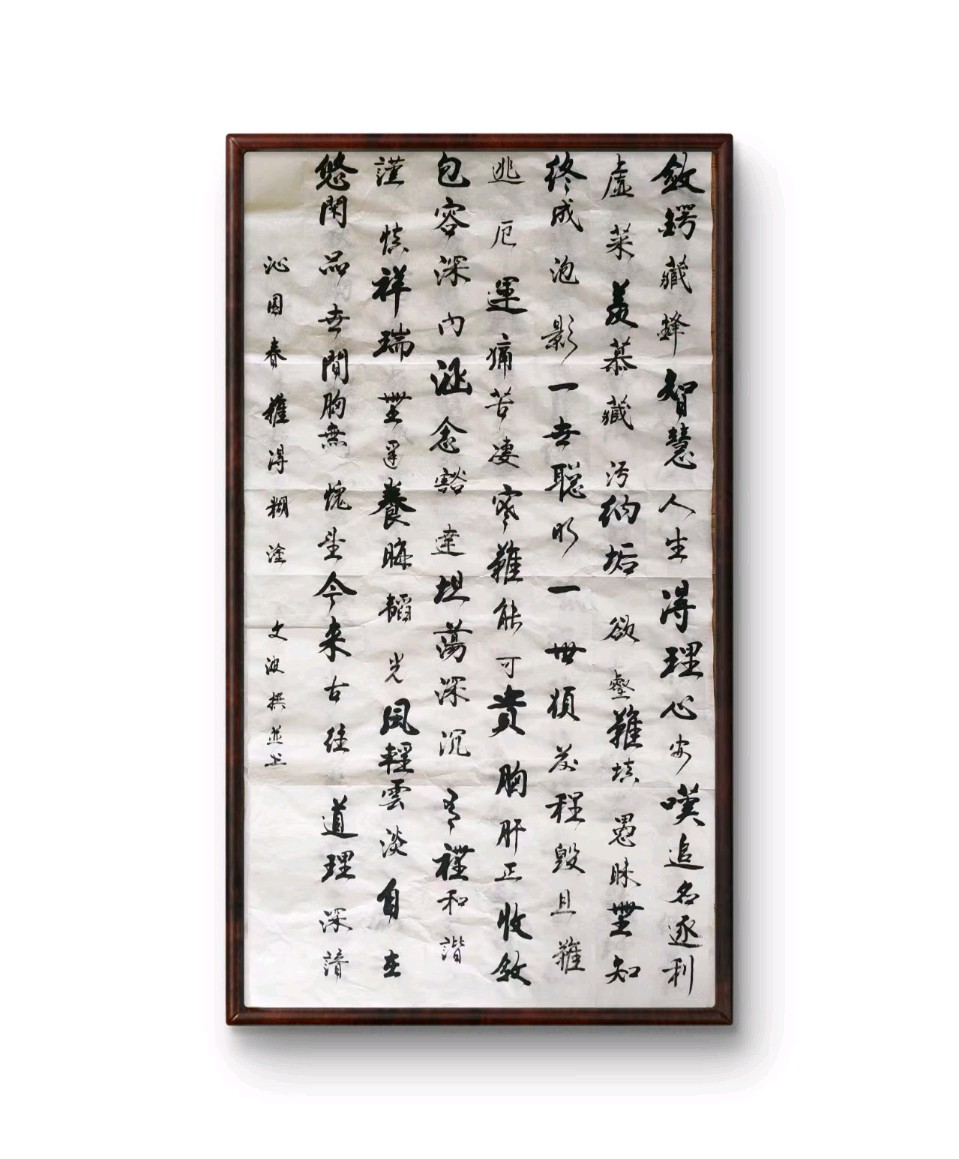 敛锷藏鋒智慧人生得理心安嘆追名逐利
虚荣美慕藏污纳垢欲壑難填愚昧無知
终成泡影一世聪明一世烦前程毁且難
逃厄運痛苦凄寒難能可贵胸肝正收敛
包容深内涵念豁達坦荡深沉有禮和諧
謹慎祥瑞無逞養晦韜光風輕雲淡自在
悠閑品世間胸無愧坐今来古往道理深諳
沁园春難得糊塗 文波撰並书